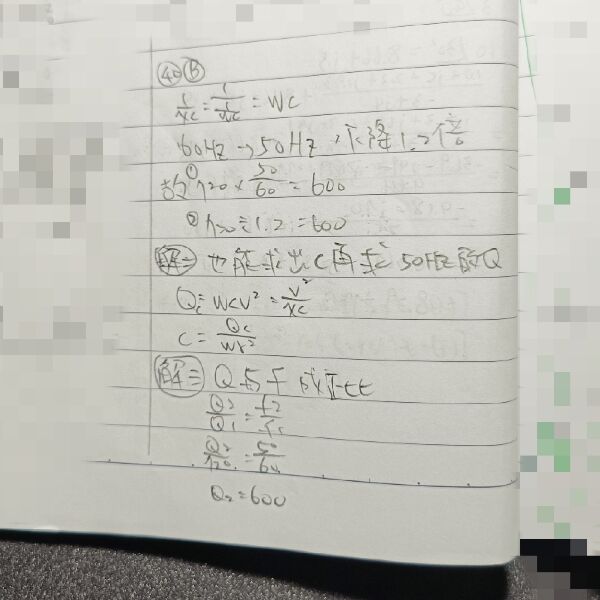 40 B
1/xc = 1/(1/wc) = wc
60Hz → 50Hz , 下降1.2倍
故① 720 × 50/60 = 600
② 720 ÷ 1.2 = 600
解二 也能求出C再求50Hz的Q
Qc = wcv² = v²/xc
C = Qc/wv²
解三 Q与f成正比
Q2/Q1 = f2/f1
Q2/720 = 50/60
Q2 = 600